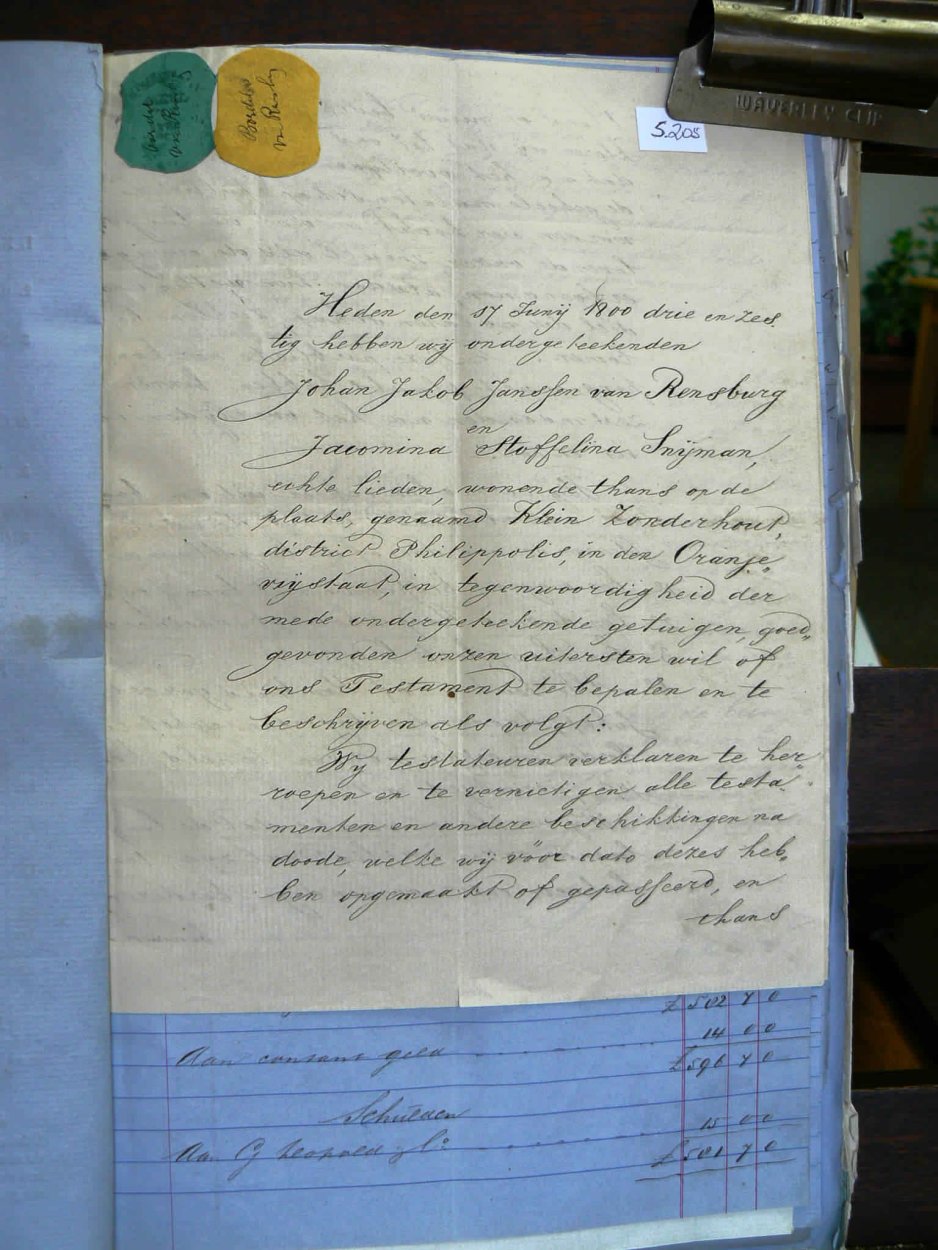 S.205
WAVERLEY CLIP
Heden den 17 Junij 1800 drie en zes
tig hebben wij ondergeteekenden
Johan Jakob Janssen van Rensburg
en
Jacomina Stoffelina Snijman,
echte lieden, wonende thans op de
plaats, genaamd Klein Zonderhout,
district Philippolis, in den Oranje„
vrijstaat, in tegenwoordigheid der
mede ondergeteekende getuigen, goed„
gevonden onzen uitersten wil of
ons Testament te bepalen en te
beschrijven als volgt:
Wij testateuren verklaren te her„
roepen en te vernietigen alle testa„
menten en andere beschikkingen na
doode, welke wij vóór dato dezes heb„
ben opgemaakt of gepasseerd, en
thans
14 0 0
Aan contant geld £596 7 0
Schulden
15 0 0
Aan G £581 7 0